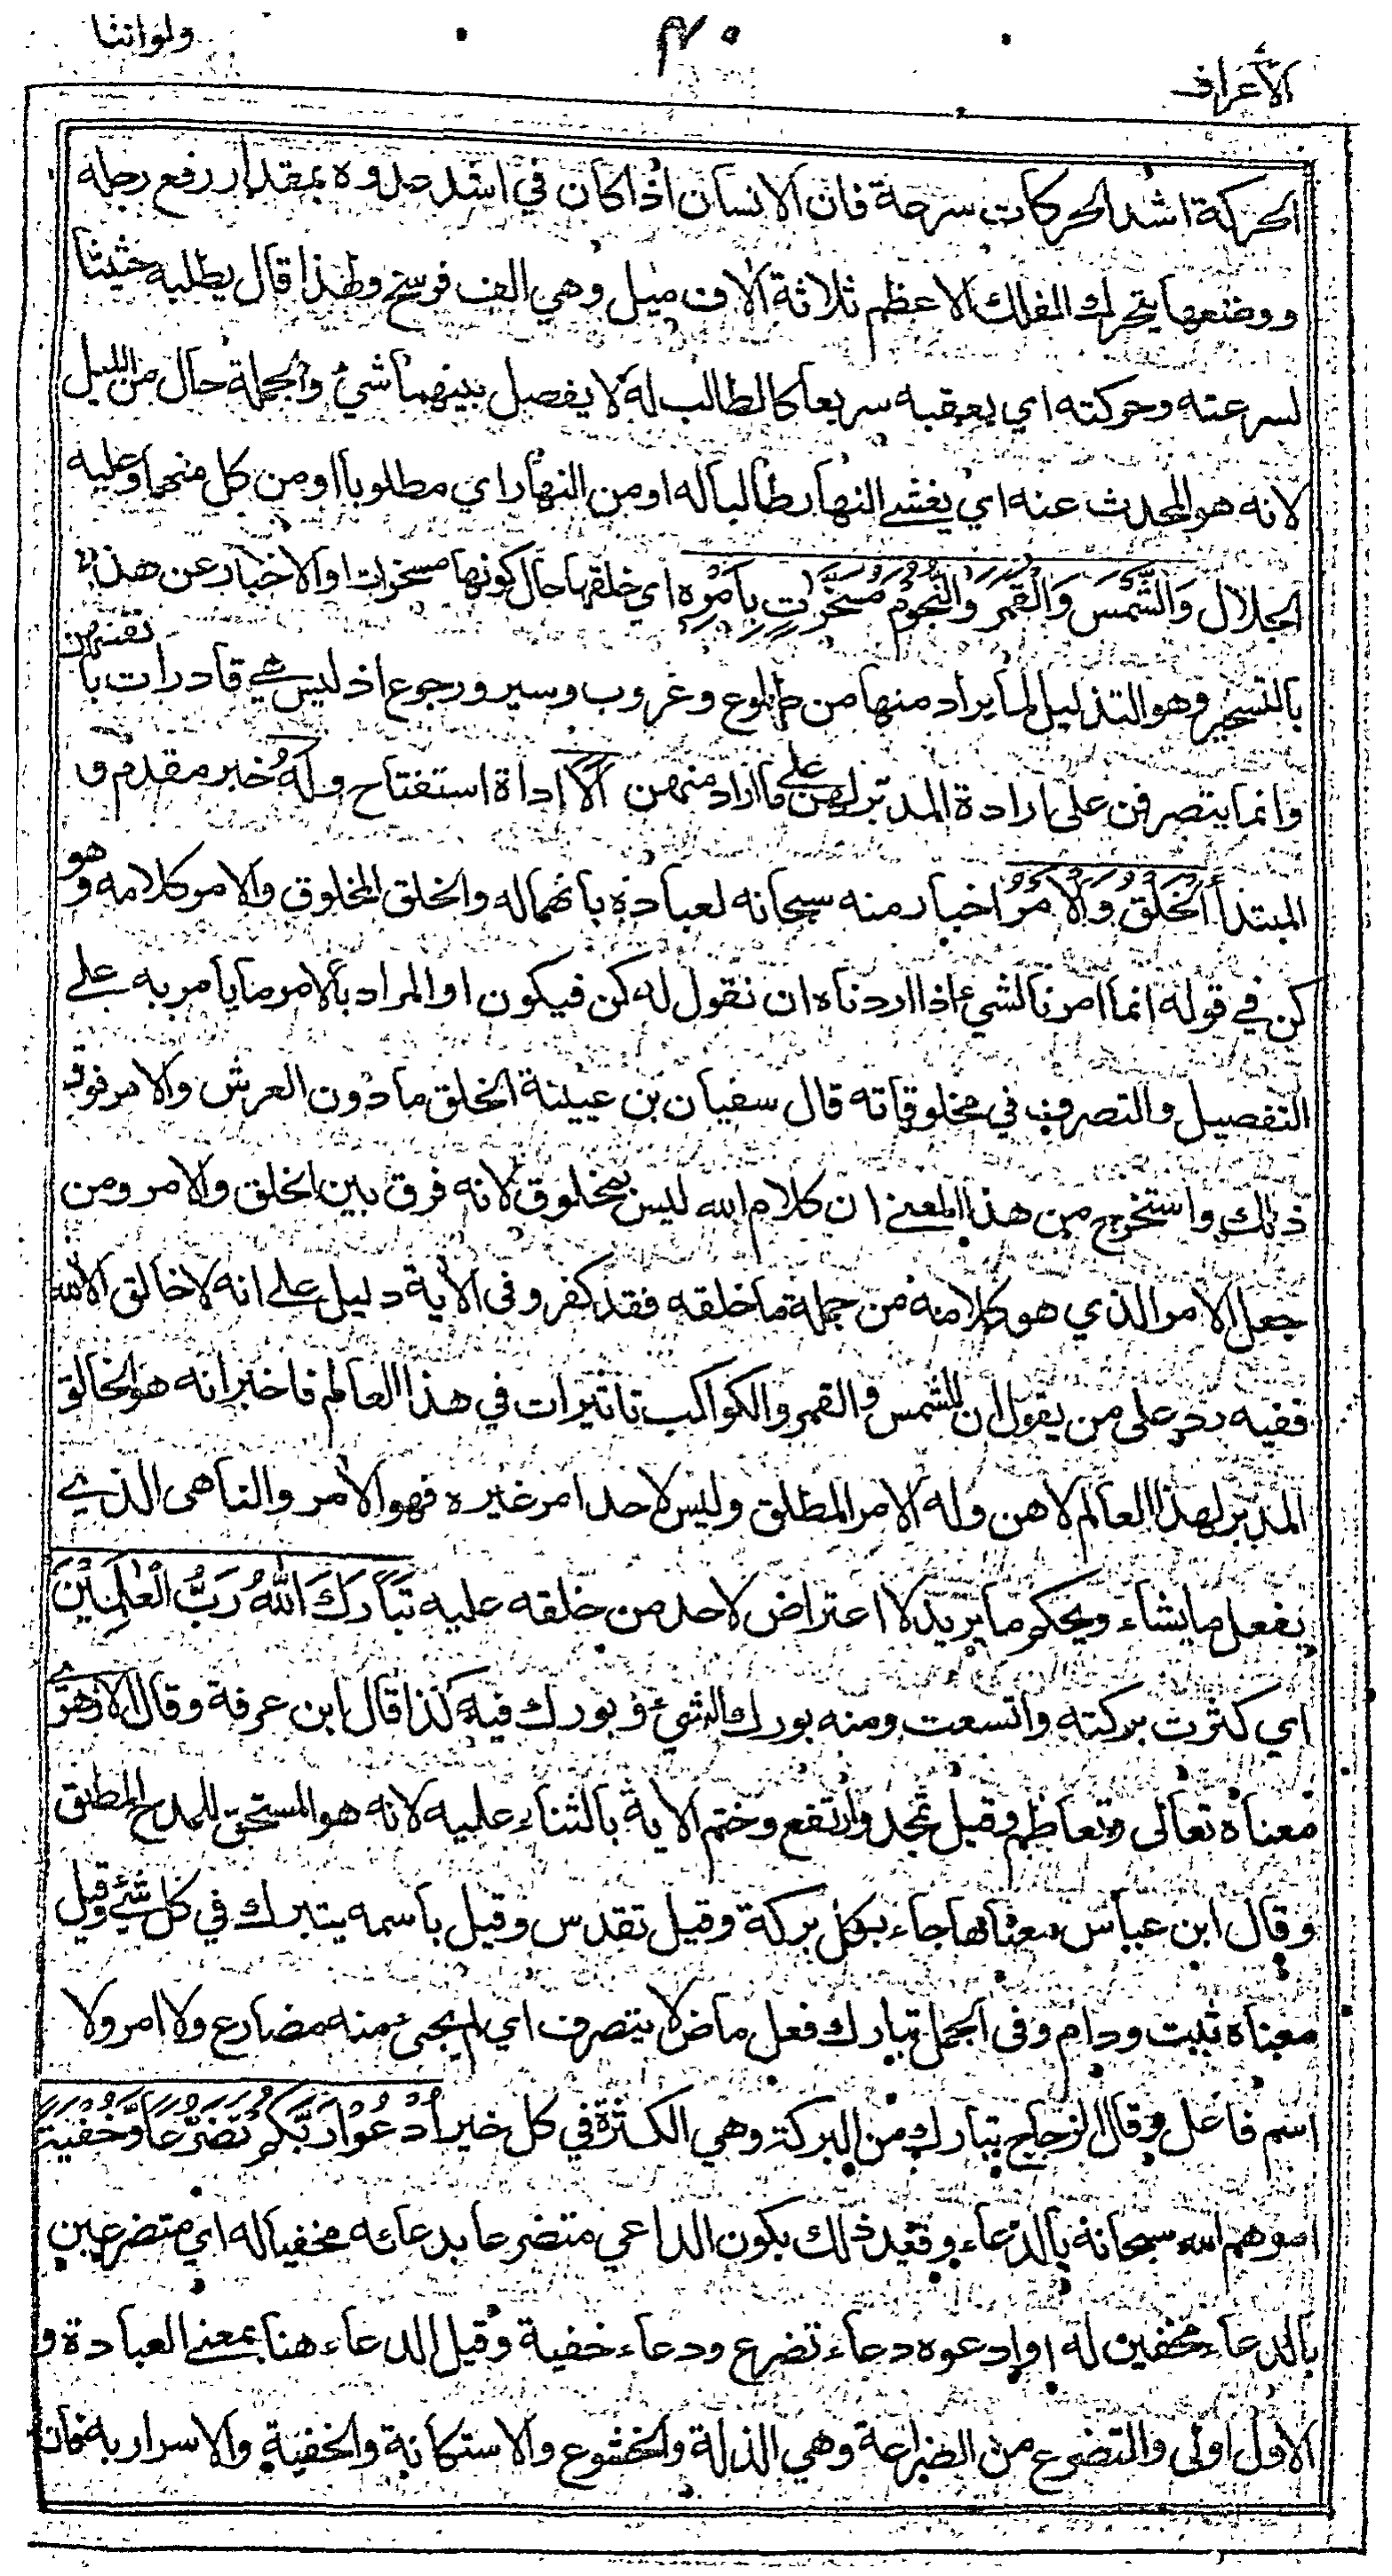 ولواننا
٣٠
الأعراف
الحركة اشد الحركات سرعة فان الانسان اذا كان في اشد عدوه بمقدار رفع رجله
ووضعها يتحرك الفلك الاعظم ثلاثة آلاف ميل وهي الف فرسخ ولهذا قال يطلبه حثيثا
لسرعته وحركته اي يعقبه سريعا كالطالب له لا يفصل بينهما شيء والجملة حال من الليل
لانه هو المحدث عنه اي يغشي النهار طالبا له او من النهار اي مطلوبا او من كل منهما وعليه
الجلال وَالشَّمْسَ وَالْقَمَرَ وَالنُّجُوْمَ مُسَخَّرَاتٍ بِاَمْرِهِ اي خلقها حال كونها مسخرات او الاخبار عن هذه
بالتسخير وهو التذليل لما يراد منها من طلوع وغروب وسير ورجوع اذ ليس هي قادرات بانفسهن
وانما يتصرفن على ارادة المدبر لهن على ما اراد منهن اَلَا اداة استفتاح ولَهُ خبر مقدم و
المبتدأ الْخَلْقُ وَالْاَمْرُ اخبار منه سبحانه لعباده بانهما له والخلق المخلوق والامر كلامه وهو
كن في قوله انما امرنا لشيء اذا اردناه ان نقول له كن فيكون او المراد بالامر ما يأمر به على
التفصيل والتصرف في مخلوقاته قال سفيان بن عيينة الخلق ما دون العرش والامر فوق
ذلك واستخرج من هذا المعنى ان كلام الله ليس بمخلوق لانه فرق بين الخلق والامر ومن
جعل الامر الذي هو كلامه من جملة ما خلقه فقد كفر وفى الآية دليل على انه لا خالق الا الله
ففيه رد على من يقول ان للشمس والقمر والكواكب تاثيرات في هذا العالم فاخبر انه هو الخالق
المدبر لهذا العالم لا هن وله الامر المطلق وليس لاحد امر غيره فهو الآمر والناهى الذي
يفعل ما يشاء ويحكم ما يريد لا اعتراض لاحد من خلقه عليه تَبَارَكَ اللّٰهُ رَبُّ الْعٰلَمِيْنَ
اي كثرت بركته واتسعت ومنه بورك الشيء وبورك فيه كذا قال ابن عرفة وقال الازهري
معناه تعالى وتعاظم وقيل تمجد وارتفع وختم الآية بالثناء عليه لانه هو المستحق للمدح المطلق
وقال ابن عباس معناها جاء بكل بركة وقيل تقدس وقيل باسمه يتبرك في كل شيء وقيل
معناه ثبت ودام وفى الجمل تبارك فعل ماض لا يتصرف اي لم يجئ منه مضارع ولا امر ولا
اسم فاعل وقال الزجاج تبارك من البركة وهي الكثرة في كل خير اُدْعُوْا رَبَّكُمْ تَضَرُّعًا وَّخُفْيَةً
امرهم الله سبحانه بالدعاء وقيد ذلك بكون الداعي متضرعا بدعائه مخفيا له اي متضرعين
بالدعاء مخفين له او ادعوه دعاء تضرع ودعاء خفية وقيل الدعاء هنا بمعنى العبادة و
الاول اولى والتضرع من الضراعة وهي الذلة والخشوع والاستكانة والخفية والاسرار به فان